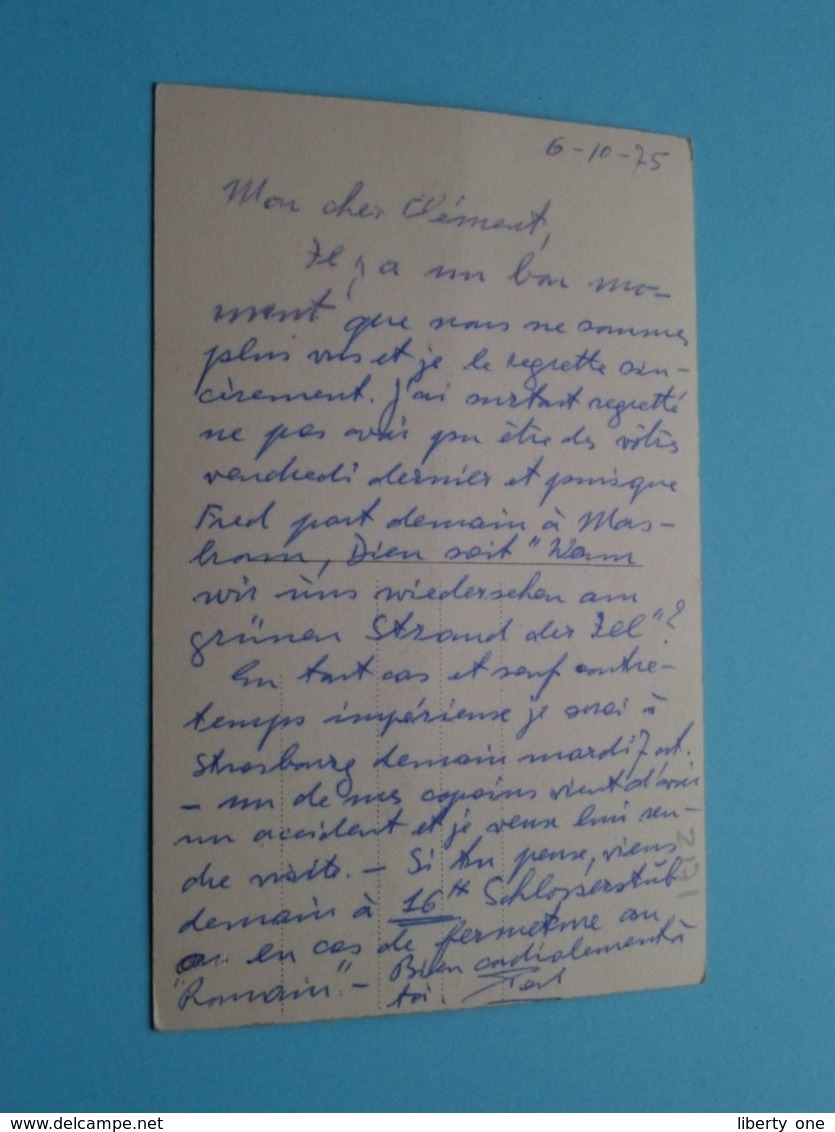 6-10-75
Mon cher Clément,
Il y a un bon mo-
ment que nous ne sommes
plus vus et je le regrette sin-
cèrement. J'ai surtout regretté
ne pas avoir pu être des vôtres
vendredi dernier et puisque
Fred part demain à Mas-
, Dieu sait "Wann
wir uns wiedersehen am
grünen Strand der Ill"?
En tout cas et sauf contre-
temps impérieux je serai à
Strasbourg demain mardi 7 oct.
- un de mes copains vient d'avoir
un accident et je veux lui ren-
dre visite. - Si tu peux, viens
demain à 16 H Schlosserstub
ou en cas de fermeture au
"Romain". - Bien cordialement à
toi.
www.delcampe.net
liberty_one